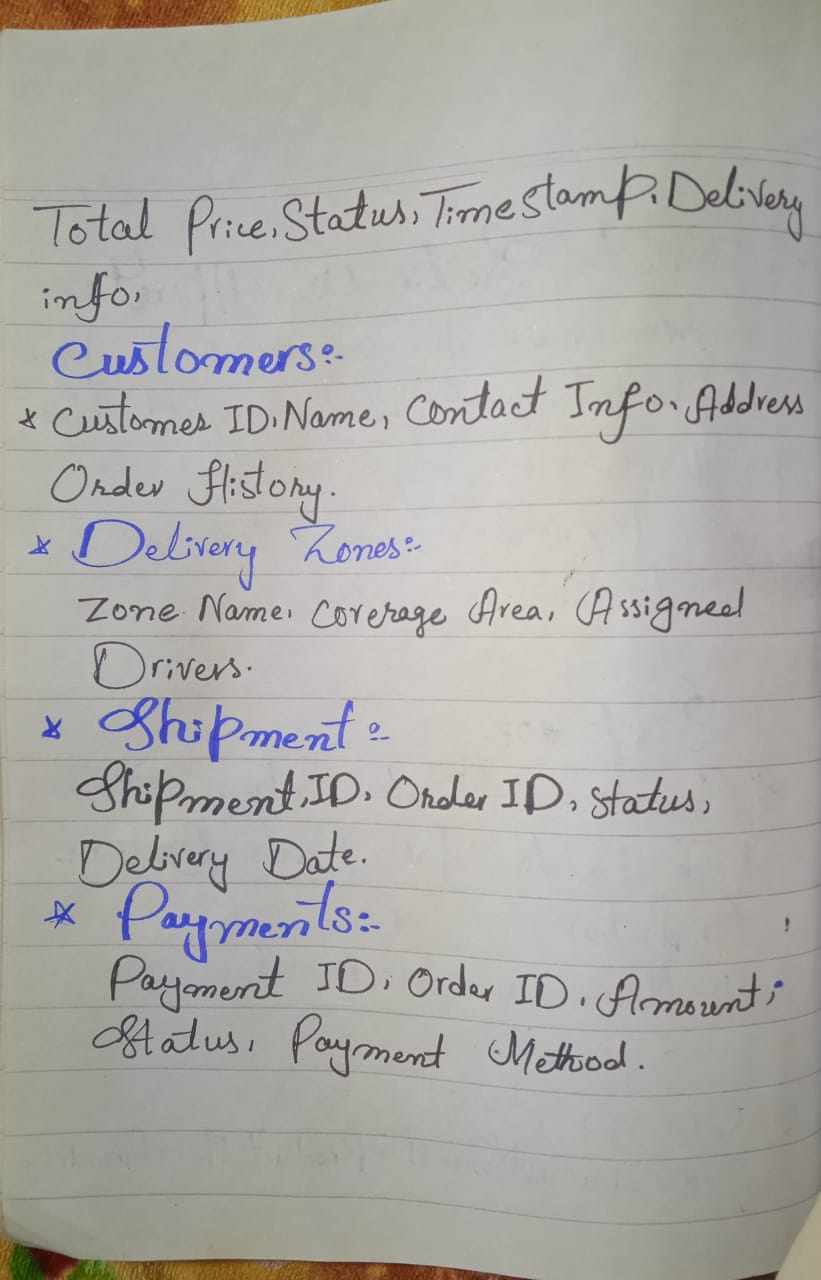 Total Price, Status, Timestamp, Delivery
info,
Customers:-
* Customer ID, Name, Contact Info, Address
Order History.
* Delivery Zones:-
Zone Name, Coverage Area, Assigned
Drivers.
* Shipment:-
Shipment, ID, Order ID, Status,
Delivery Date.
* Payments:-
Payment ID, Order ID, Amount,
Status, Payment Method.